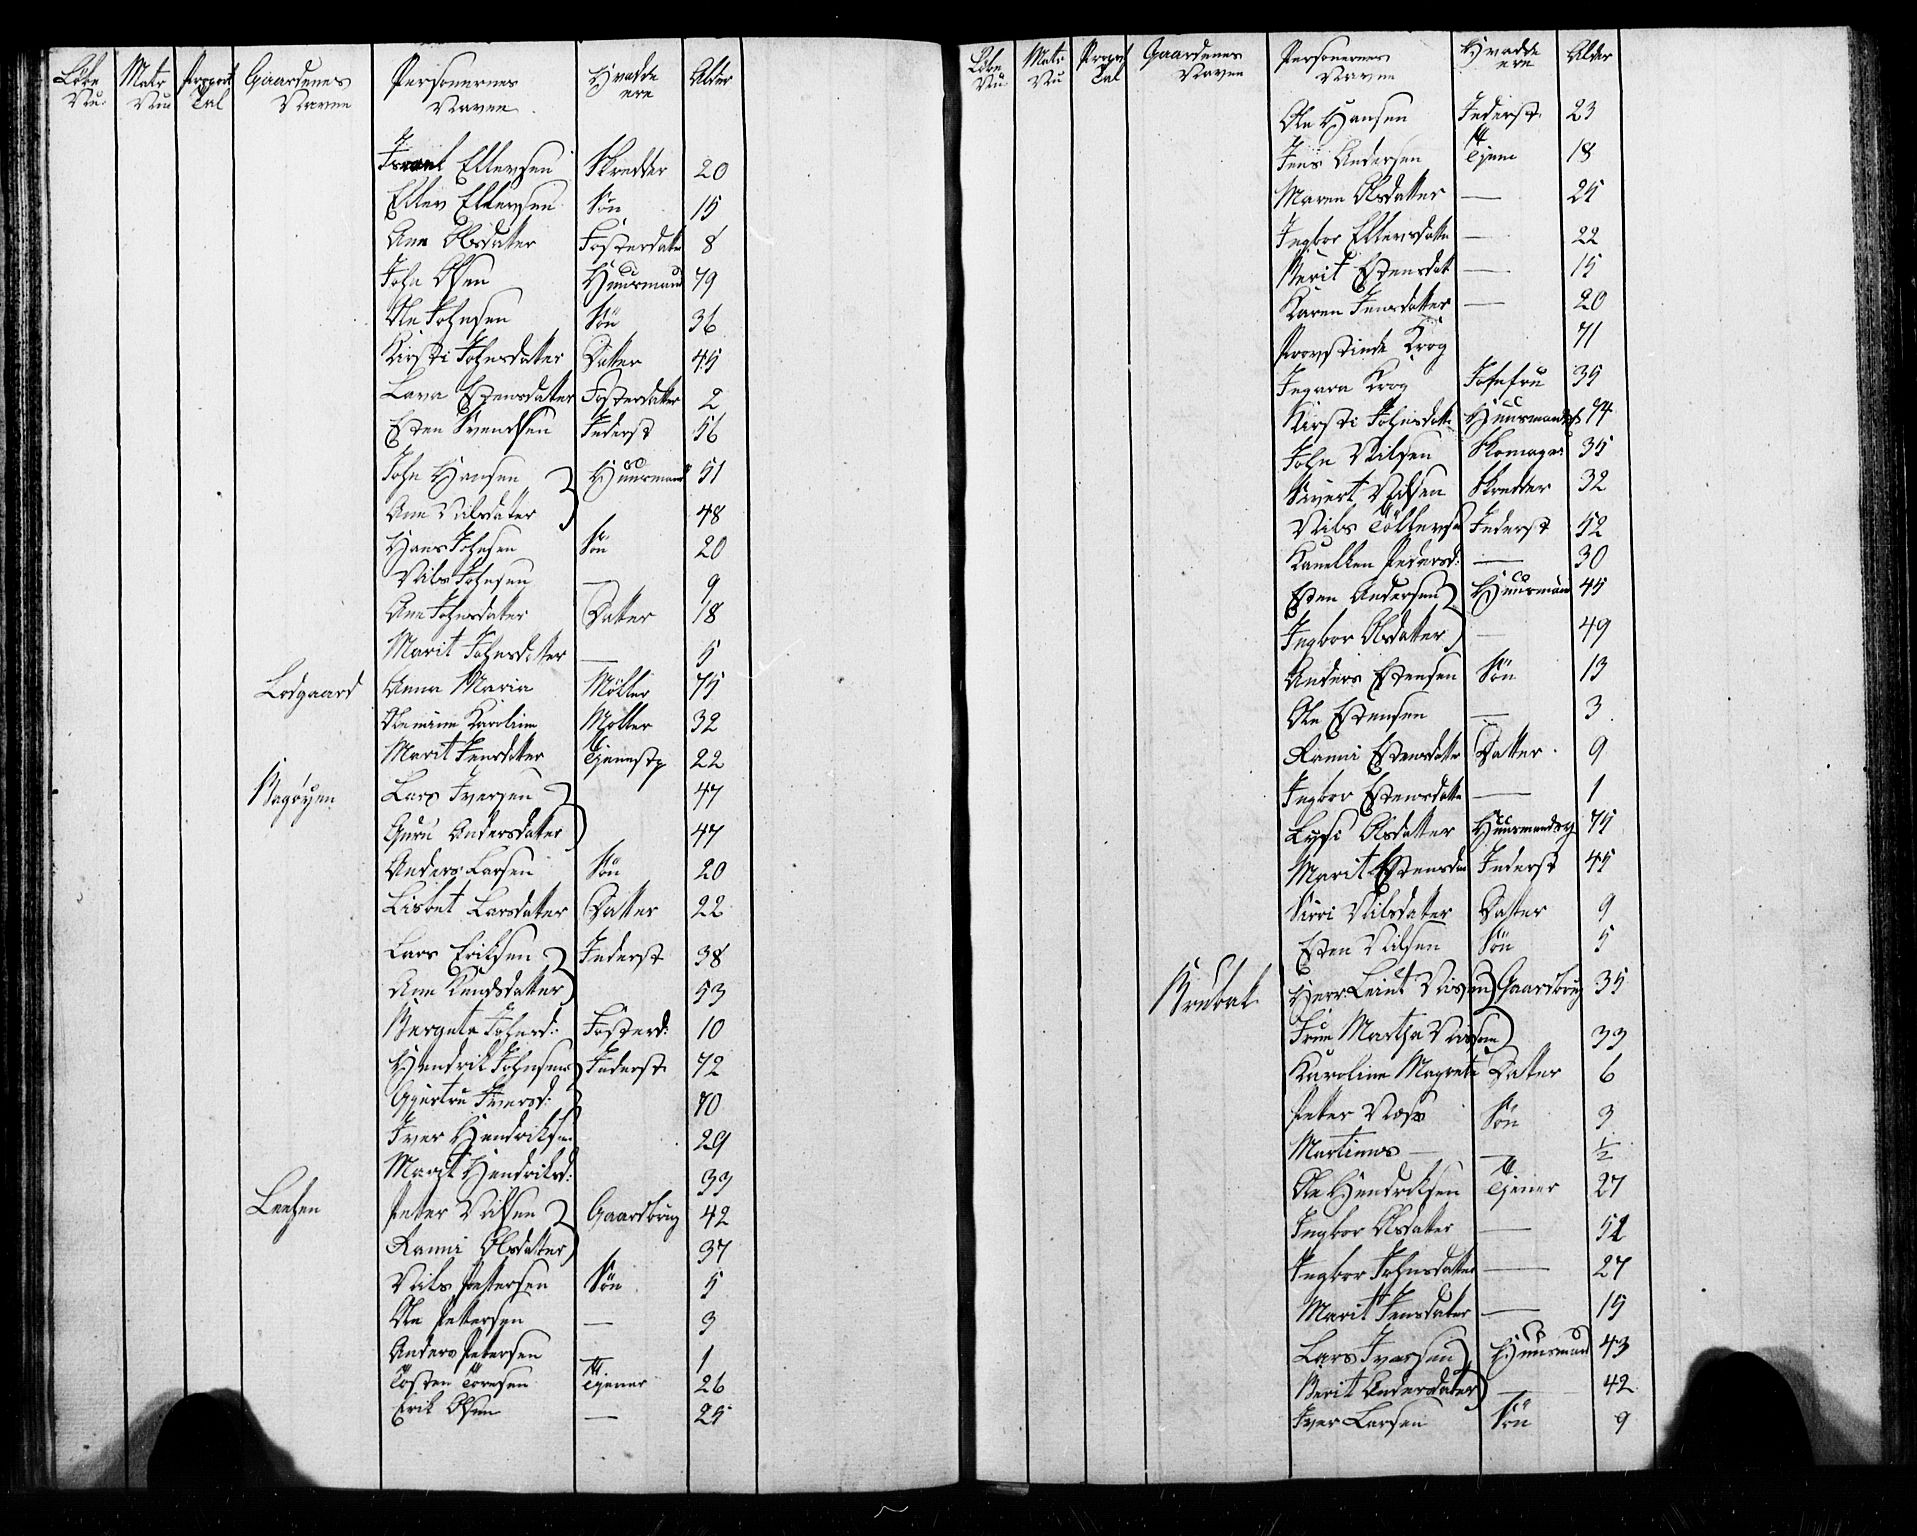 Løbe Nu. Matr Nu Proport Tal Gaardenes Navne Personernes Navne Hvadde ere Alder
Israel Ellevsen Skredder 20
Ellev Ellevsen Søn 15
Ane Olsdatter Fosterdatter 8
John Olsen Huusmand 79
Ole Johnsen Søn 36
Kirsti Johnsdatter Datter 45
Lava Estensdatter Fosterdatter 2
Esten Svendsen Inderst 56
John Hansen Huusmand 51
Ane Nilsdatter 48
Hans Johnsen Søn 20
Nils Johnsen — 9
Ane Johnsdatter Datter 18
Marit Johnsdatter — 5
Lodgaard Anna Maria Möller 75
Karoline Möller 32
Marit Jensdatter Tjenestp 22
Lars Iversen 47
Guru Andersdatter 47
Anders Larsen Søn 20
Lisbet Larsdatter Datter 22
Lars Eriksen Inderst 38
Ane Knudsdatter 53
Bergeta Johnsd: Fosterd: 10
Hendrik Johnsen Inderst 72
Gjertru Iversd: 70
Iver Hendriksen 29
Marit Hendriksd: 33
Leehen Peter Nilsen Gaardbrug 42
Ranni Olsdatter 37
Nils Pettersen Søn 5
Ole Pettersen — 3
Anders Petersen — 1
Tosten Toresen Tjener 26
Erik Olsen — 25
Løbe Nu. Matr Nu Proport Tal Gaardenes Navne Personernes Navne Hvadde ere Alder
Ole Hansen Inderst. 23
Jens Andersen Tjene 18
Maren Olsdatter — 25
Ingbor Ellevsdatte — 22
Berit Estensdat — 15
Karen Jensdatter — 20
Provstinde Krog 71
Ingara Krog Jomfru 35
Kirsti Johnsdatte Huusmands 74
John Nilsen Skomager 35
Sivert Nilsen Skredder 32
Nils Tollevse Inderst 52
Kanelken Pedersd: — 30
Esten Andersen Huusman 45
Ingbor Olsdatter — 49
Anders Estensen Søn 13
Ole Estensen — 3
Ranni Estensdatte Datter 9
Ingbor Estensdatte — 1
Lyse Olsdatter Huusmands 75
Marit Estensdat Inderst 45
Sirri Nilsdatter Datter 9
Esten Nilsen Søn 5
Brubak Herr Leiut Nissen Gaardbrug 35
Frue Martha Nissen 33
Karoline Magrete Datter 6
Peter Næss Søn 3
Martinus — — ½
Ole Hendriksen Tjener 27
Ingbor Olsdatter — 52
Ingbor Johnsdatter — 27
Marit Jensdatter — 15
Lars Ivarsen Huusmand 43
Berit Andersdatter — 42
Iver Larsen Søn 9